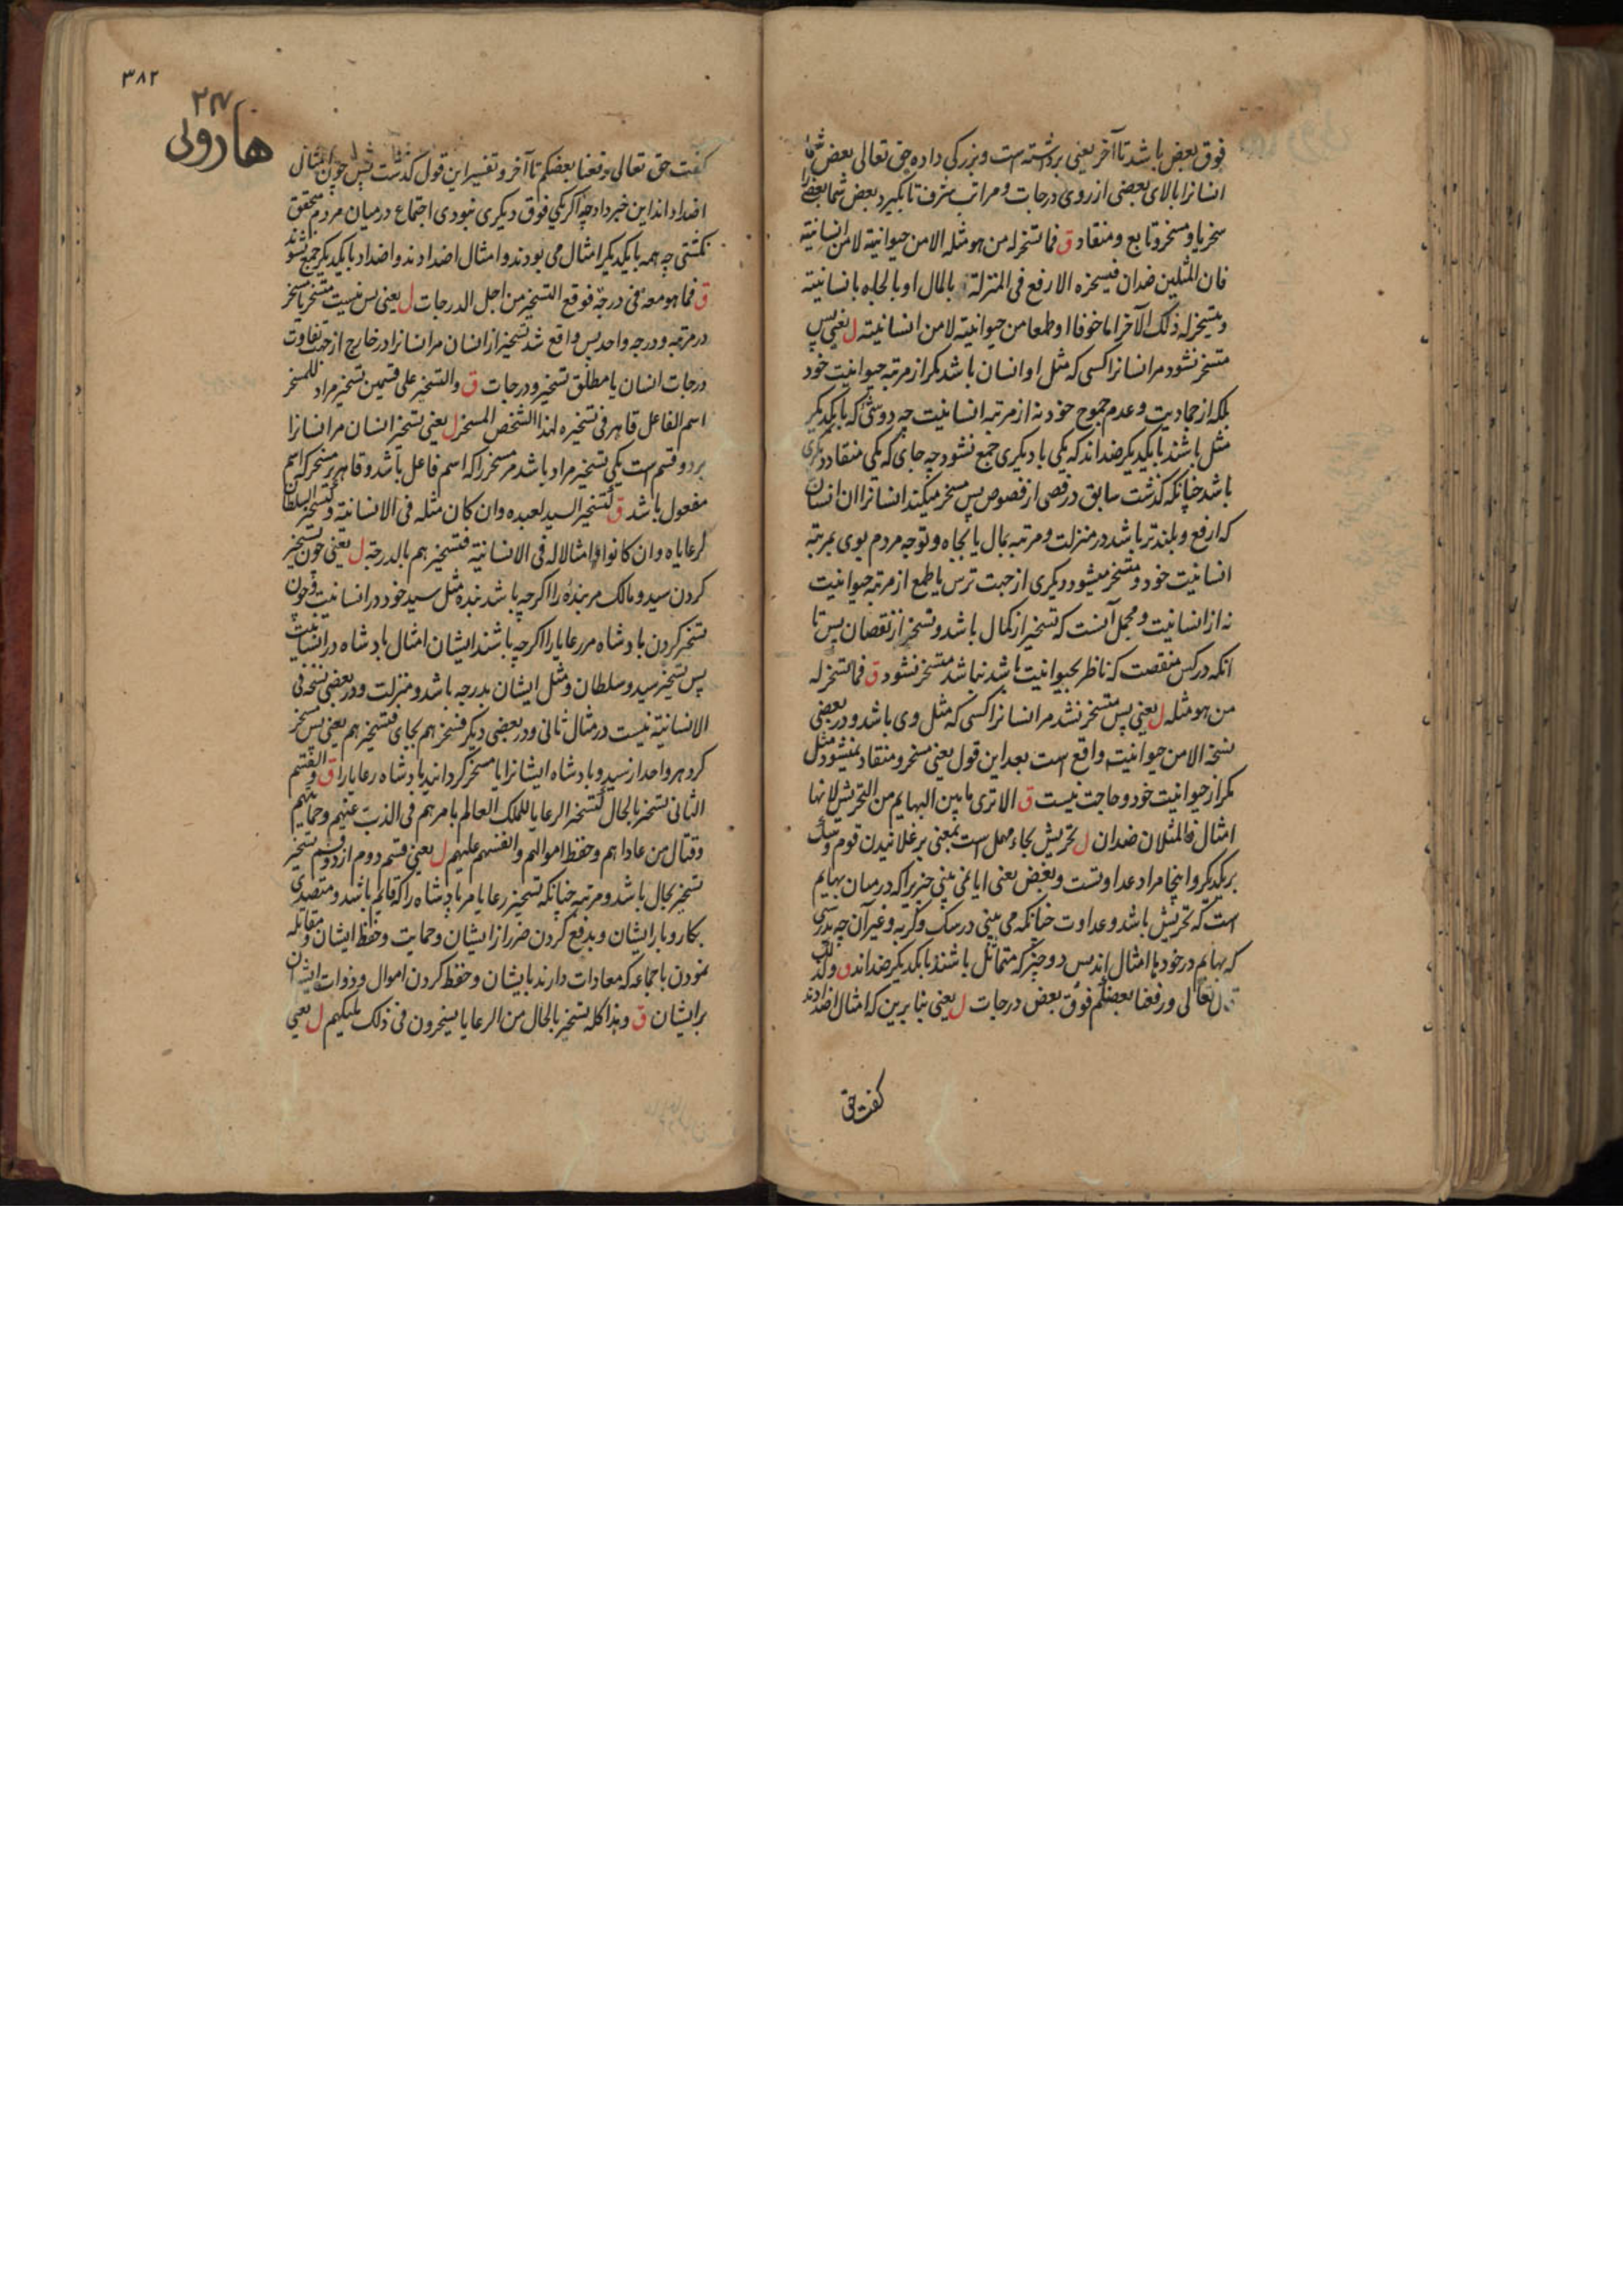 فوق بعض باشد تا آخر یعنی برداشته است و بزرکی داده حق تعالی بعض شما
انسانرا بالای بعضی از روی درجات و مراتب شرف تا بگیرد بعض شما بعضرا
سخریا و مسخر و تابع و منقاد ق فما تسخر له من هو مثله الا من حیوانیته لا من انسانیته
فان المثلین ضدان فیسخره الارفع فی المنزلة بالمال او بالجاه بانسانیته
و یتسخر له ذلک الآخر اما خوفا او طمعا من حیوانیته لا من انسانیته ل یعنی پس
متسخر نشود مر انسانرا کسی که مثل او انسان باشد مکر از مرتبه حیوانیت خود
بلکه از جمادیت و عدم جموح خود نه از مرتبه انسانیت چه دو شئ که با یکدیکر
مثل باشند با یکدیکر ضد اند که یکی با دیکری جمع نشود چه جای که یکی منقاد دیکری
باشد چنانکه کذشت سابق در فصی از فصوص پس مسخر میکند انسانرا ان انسان
که ارفع و بلندتر باشد در منزلت و مرتبه بمال یا بجاه و توجه مردم بوی بمرتبه
انسانیت خود و متسخر میشود دیکری از جهت ترس یا طمع از مرتبه حیوانیت
نه از انسانیت و مجمل آنست که تسخیر از کمال باشد و تسخر از نقصان پس تا
انکه در کس منقصت که ناظر بحیوانیت باشد نباشد متسخر نشود ق فما تسخر له
من هو مثله ل یعنی پس متسخر نشد مر انسانرا کسی که مثل وی باشد و در بعضی
نسخه الا من حیوانیته واقع است بعد این قول یعنی مسخر و منقاد نمیشود مثل
مکر از حیوانیت خود و حاجت نیست ق الا تری ما بین البهایم من التحریش لانها
امثال فالمثلان ضدان ل تحریش بحاء مهمل است بمعنی برغلانیدن قوم و سک
بر یکدیکر و اینجا مراد عداوتست و بغض یعنی ایا نمی بینی چیزیرا که در میان بهایم
است که تحریش باشد و عداوت چنانکه می بینی در سک و کربه و غیر آن چه بدرستی
که بهایم در خودها امثال اند پس دو چیز که متماثل باشند با یکدیکر ضد اند ق و لذلک
قال تعالی و رفعنا بعضکم فوق بعض درجات ل یعنی بنا برین که امثال اضدادند
کفت حق
۳۸۲
هارونی
کفت حق تعالی و رفعنا بعضکم تا آخر و تفسیر این قول کذشت پس چون امثال
اضداد اند این خبر داد چه اکر یکی فوق دیکری نبودی اجتماع در میان مردم متحقق
نکشتی چه همه با یکدیکر امثال می بودند و امثال اضدادند و اضداد با یکدیکر جمع نشوند
ق فما هو معه فی درجة فوقع التسخیر من اجل الدرجات ل یعنی پس نیست متسخر با مسخر
در مرتبه و درجه واحد پس واقع شد تسخیر از انسان مر انسانرا در خارج از جهت تفاوت
درجات انسان یا مطلق تسخیر و درجات ق و التسخیر علی قسمین تسخیر مراد للمسخر
اسم الفاعل قاهر فی تسخیره لهذا الشخص المسخر ل یعنی تسخیر انسان مر انسانرا
بر دو قسم است یکی تسخیر مراد باشد مر مسخر را که اسم فاعل باشد و قاهر بر مسخر که اسم
مفعول باشد ق کتسخیر السید لعبده و ان کان مثله فی الانسانیة و کتسخیر السلطان
لرعایاه و ان کانوا امثالا له فی الانسانیة فتسخیرهم بالدرجة ل یعنی چون تسخیر
کردن سید و مالک مر بنده را اکرچه باشد بنده مثل سید خود در انسانیت و چون
تسخیر کردن بادشاه مر رعایا را اکرچه باشند ایشان امثال بادشاه در انسانیت
پس تسخیر سید و سلطان و مثل ایشان بدرجه باشد و منزلت و در بعضی نسخه فی
الانسانیة نیست در مثال ثانی و در بعضی دیکر فسخرهم بجای فتسخیرهم یعنی پس مسخر
کرد هر واحد از سید و بادشاه ایشانرا یا مسخر کردانید بادشاه رعایا را ق و القسم
الثانی تسخیر بالحال کتسخیر الرعایا للملک القایم بامرهم فی الذب عنهم و حمایتهم
و قتال من عاداهم و حفظ اموالهم و انفسهم علیهم ل یعنی قسم دوم از دو قسم تسخیر
تسخیر بحال باشد و مرتبه چنانکه تسخیر رعایا مر بادشاه را که قایم باشد و متصدی
بکار و بار ایشان و بدفع کردن ضرر از ایشان و حمایت و حفظ ایشان و مقابله
نمودن با جماعه که معادات دارند بایشان و حفظ کردن اموال و ذوات ایشان
بر ایشان ق و هذا کله تسخیر بالحال من الرعایا یسخرون فی ذلک ملیکهم ل یعنی